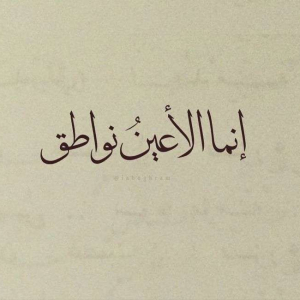 إنما الأعينُ نواطق